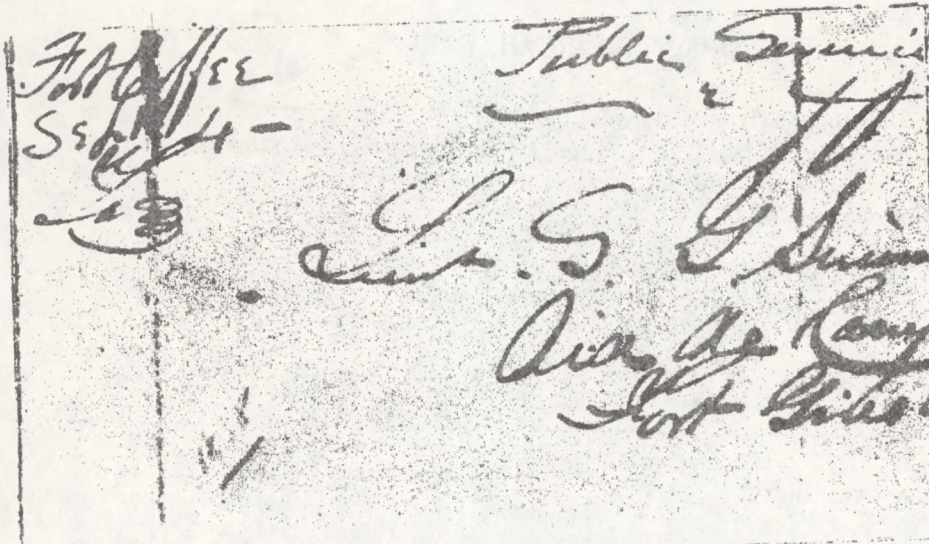 Fort Coffee
Sept 4 -
Public Servic
Lieut. S. G. Simm
Aid de Camp
Fort Gibso